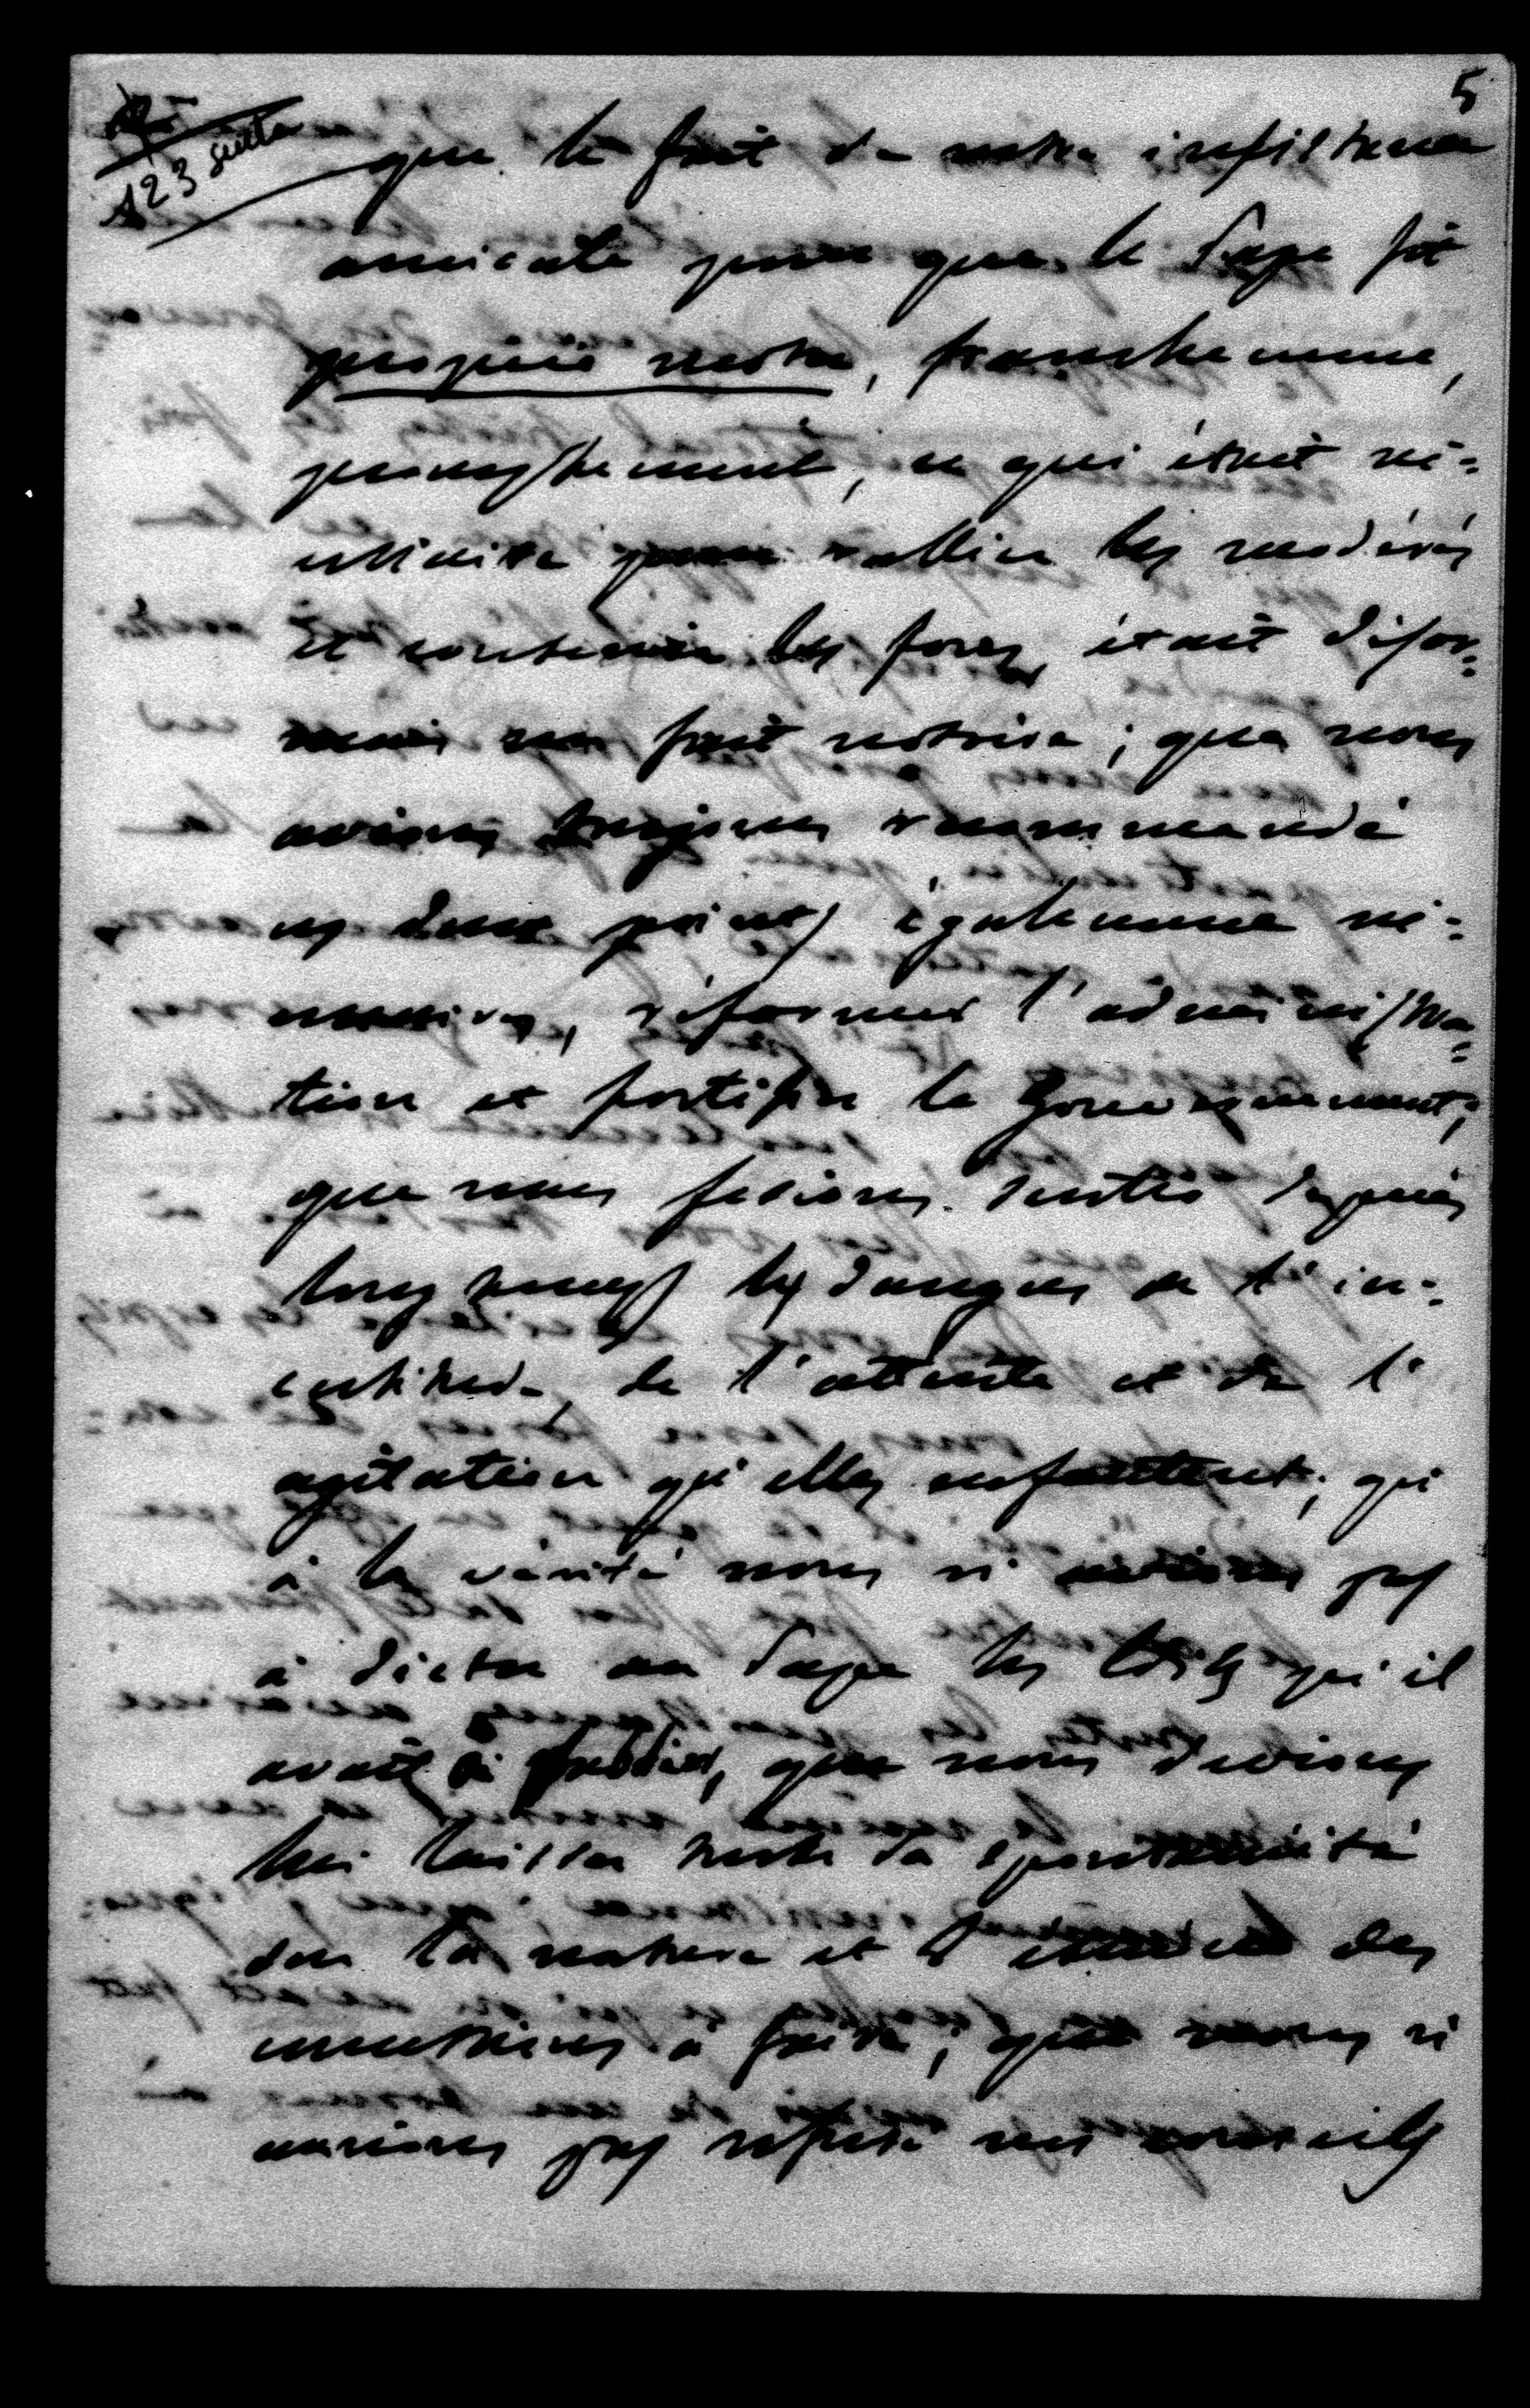 5
123 suite
que le fait de notre insistance
amicale pour que le Pape fit
proprio motu, franchement,
promptement, ce qui était né=
cessaire pour rallier les modérés
et contenir les fous, était désor=
mais un fait notoire; que nous
avions toujours recommandé
ces deux points également né=
cessaires, réformer l'administra=
tion et fortifier le Gouvernement;
que nous faisions sentir depuis
longtemps les dangers de l'in=
certitude, de l'attente et de l'
agitation qu'elles enfantent; qu'
à la vérité nous n'avions pas
à dicter au Pape les lois qu'il
avait à publier, que nous devions
lui laisser toute sa spontanéité
sur la nature et l' des
concessions à faire; que nous n'
aurions pas refusé nos conseils